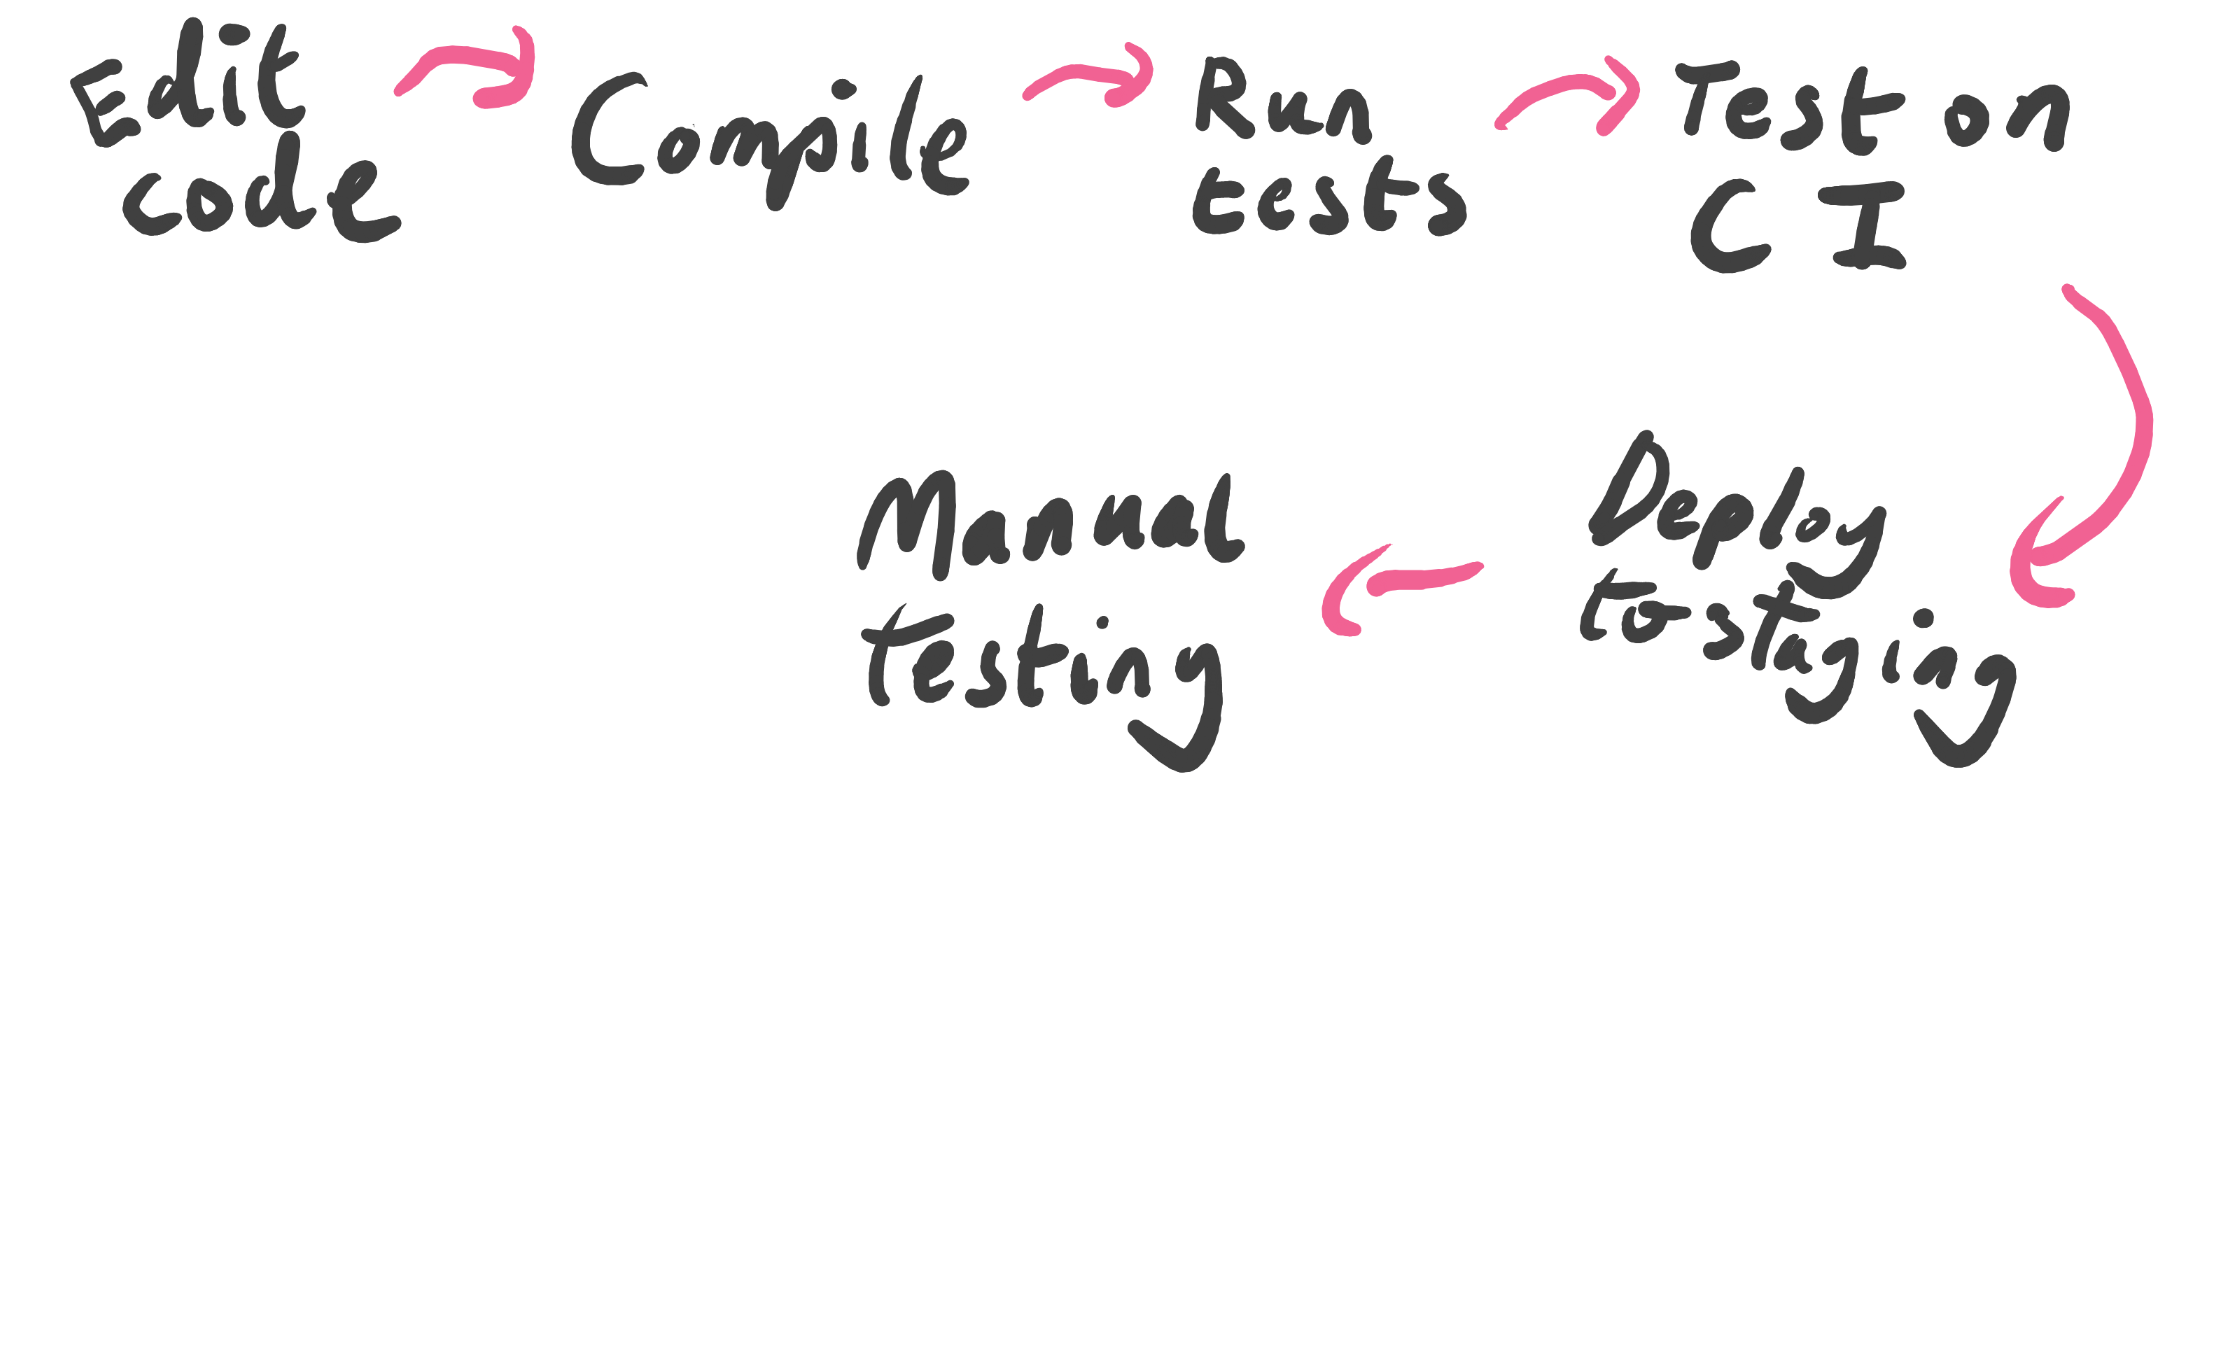 Edit
code
Compile
Run
tests
Test on
CI
Deploy
to staging
Manual
testing